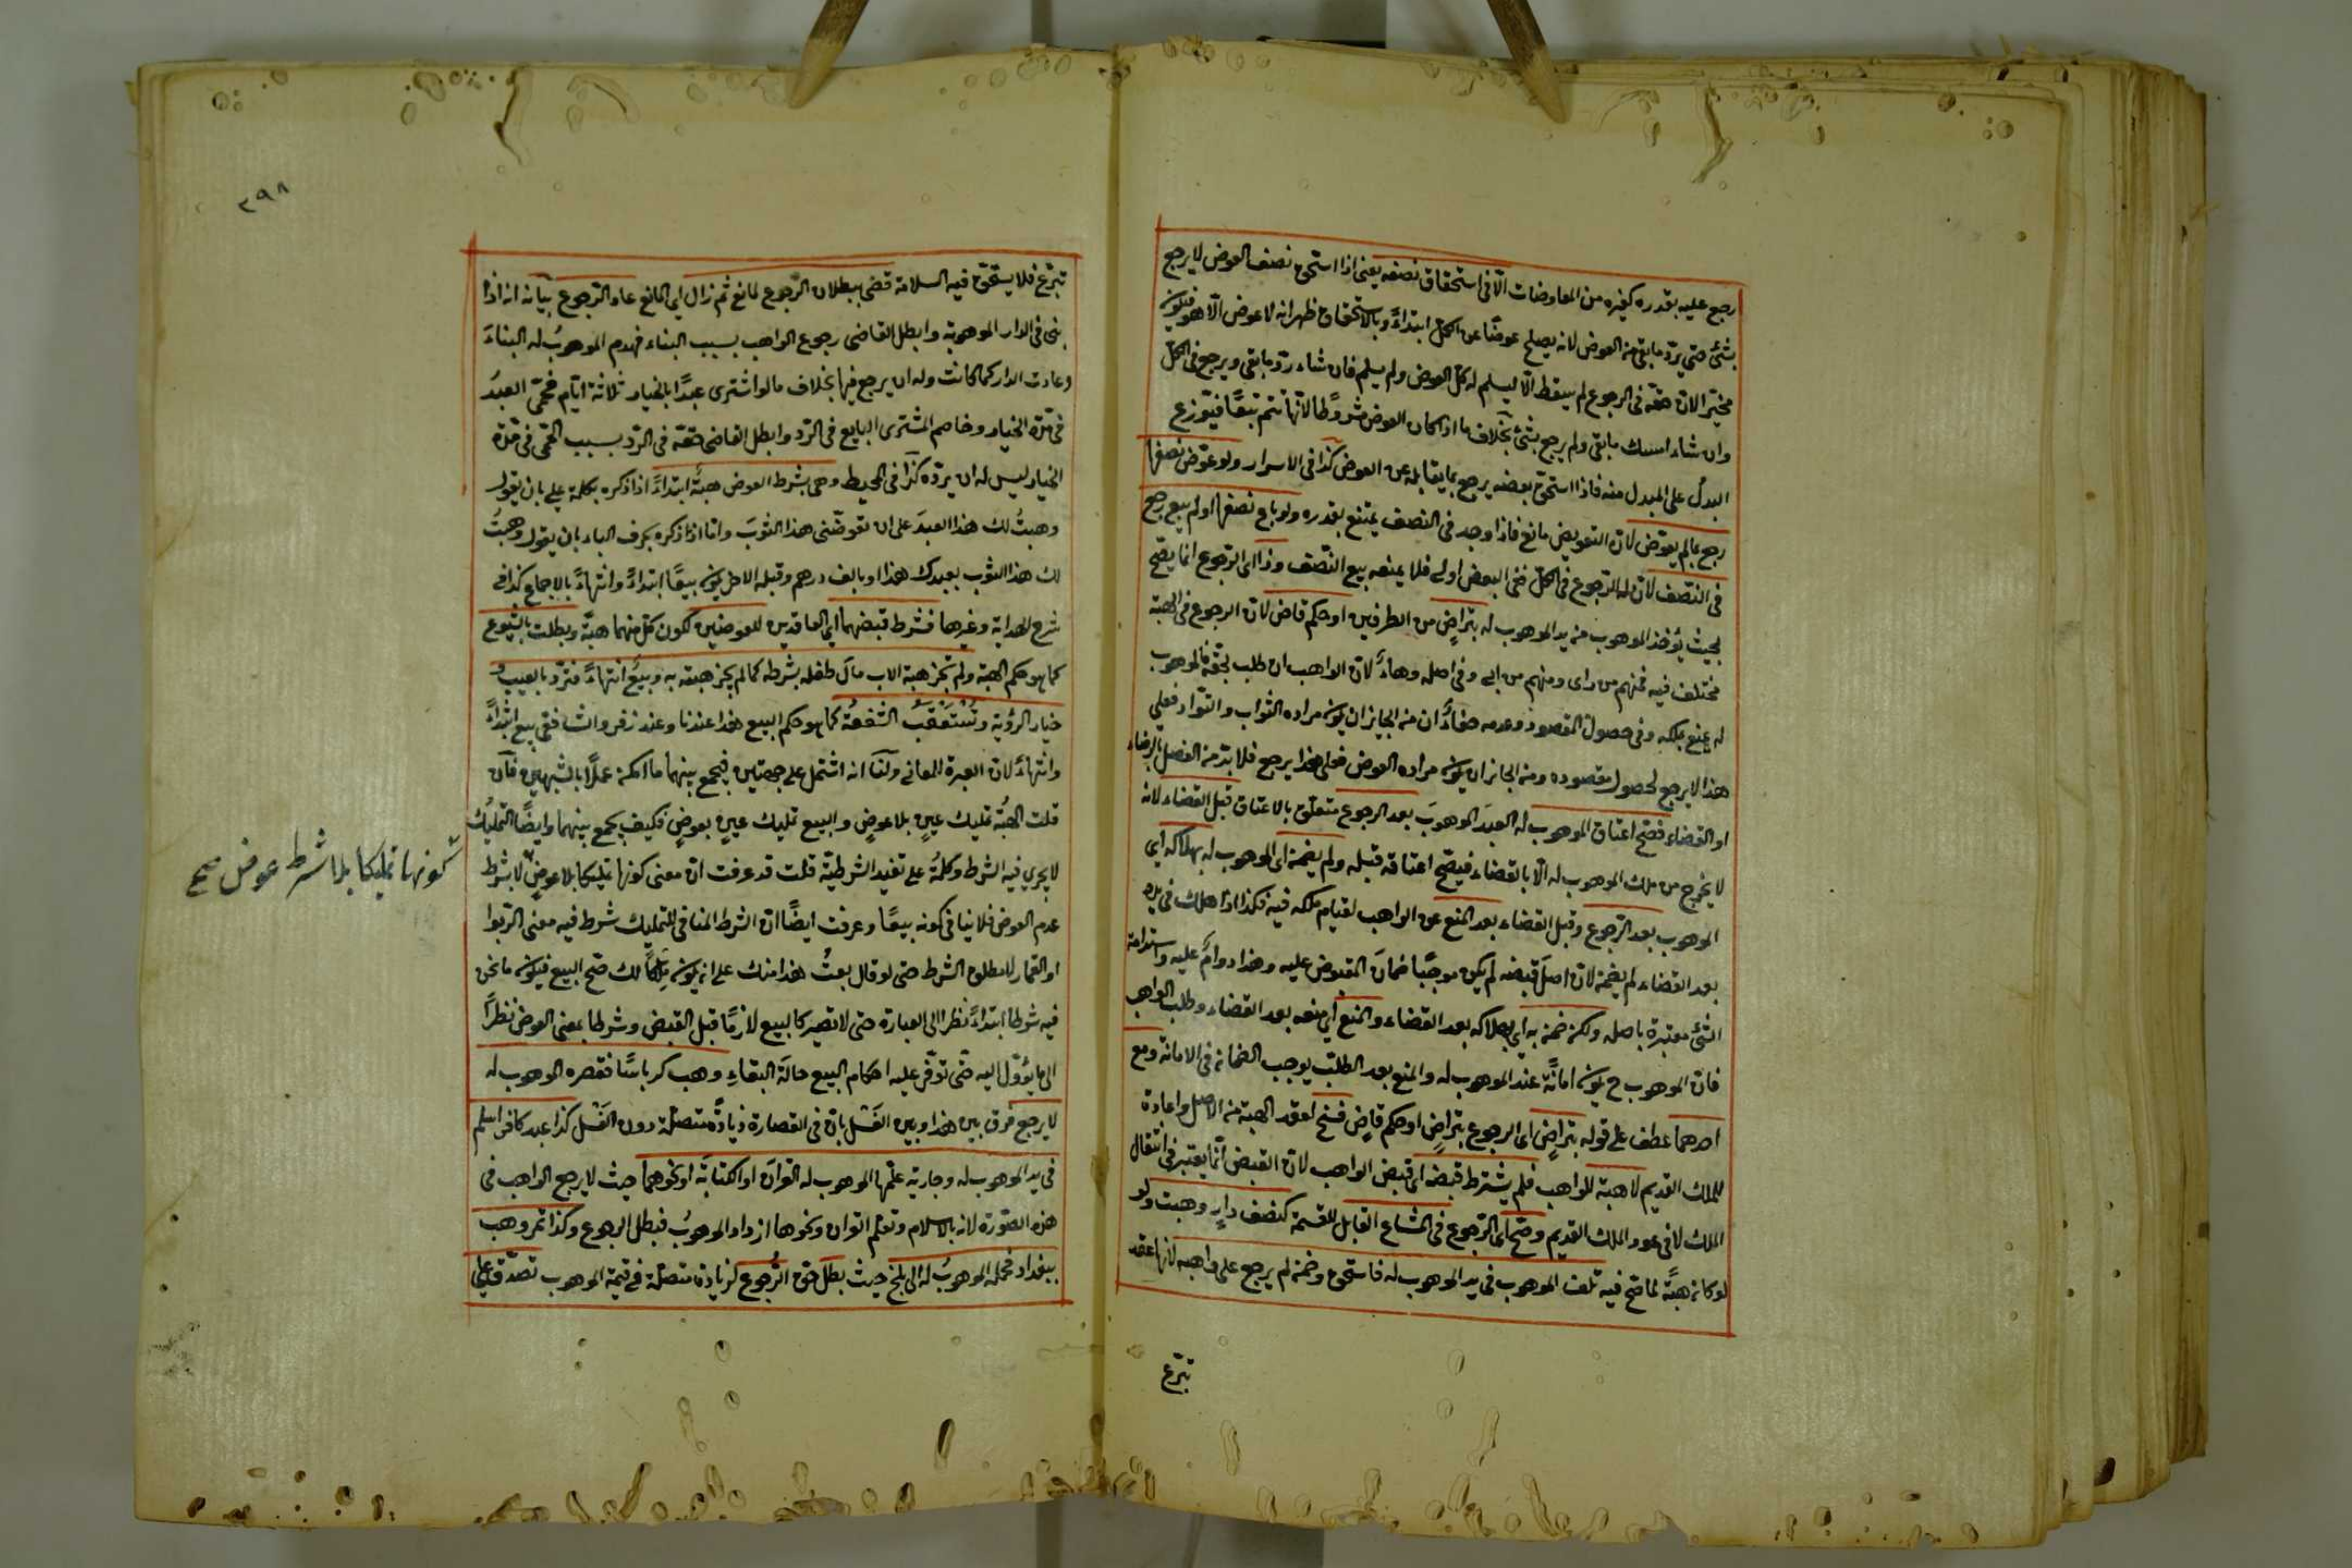 رجع عليه بقدره كغيره من المعاوضات الّا في استحقاق نصفه يعني اذا استحق نصف العوض لا يرجع
بشئ حتى يردّ ما بقي من العوض لانه يصلح عوضًا عن الكلّ ابتداءً وبالاستحقاق ظهر انه لا عوض الّا هو فيكون
مخيّرا لانّ حقّه في الرجوع لم يسقط الّا ليسلم له كلّ العوض ولم يسلم فان شاء ردّ ما بقي ويرجع في الكلّ
وان شاء امسك ما بقي ولم يرجع بشئ بخلاف ما اذا كان العوض مشروطًا لانّها تتم تبعًا فيتوزع
البدلُ على المبدل منه فاذا استحقّ بعضه يرجع بما يقابله عن العوض كذا في الاسرار ولو عوّض نصفها
رجع بما لم يعوّض لانّ التعويض مانع فاذا وجد في النصف يمتنع بقدره ولو باع نصفها او لم يبع رجع
في النصف لانّ له الرّجوع في الكلّ ففي البعض اولى فلا يمنعه بيع النّصف وذا اى الرّجوع انما يصّح
بحيث يؤخذ الموهوب من يد الموهوب له بتراضٍ من الطرفين او حكم قاض لانّ الرجوع في الهبة
مختلف فيه فمنهم من راى ومنهم من ابى وفي اصله وهاءٌ لانّ الواهب ان طلب بحقّه فالموهوب
له يمنع بملكه وفي حصول المقصود وعدمه خفاءٌ ان من الجايز ان يكون مراده الثواب والتوادّ فعلى
هذا لا يرجع لحصول مقصوده ومن الجائز ان يكون مراده العوض فعلى هذا يرجع فلا بدّ من الفصل بالرضاء
او القضاء فصّح اعتاق الموهوب له العبدَ الموهوبَ بعد الرجوع متعلّق بالاعتاق قبل القضاء لانه
لا يخرج من ملك الموهوب له الّا بالقضاء فيصّح اعتاقه قبله ولم يضمن اى الموهوب له بهلاكه اى
الموهوب بعد الرّجوع وقبل القضاء بعد المنع عن الواهب لقيام ملكه فيه فكذا اذا هلك في يده
بعد القضاء لم يضمن لانّ اصل قبضه لم يكن موجبًا ضمانَ المقبوض عليه وهذا دوامٌ عليه واستدامة
الشئ معتبرة باصله ولكن ضمن به اى بهلاكه بعد القضاء والمنع اى منعه بعد القضاء وطلب الواهب
فانّ الموهوب ح يكون امانةً عند الموهوب له والمنع بعد الطلب يوجب الضمان في الامانة ومع
احدهما عطف على قوله بتراضٍ اى الرجوع بتراضٍ او حكم قاضٍ فسخ لعقد الهبة من الاصل واعادة
للملك القديم لا هبة للواهب فلم يشترط قبضه اى قبض الواهب لانّ القبض انّما يعتبر في انتقال
الملك لا في عود الملك القديم وصّح اى الرّجوع في المشاع القابل للقسمة كنصف دارٍ وهبت ولو
لو كان هبةً لما صّح فيه تلف الموهوب في يد الموهوب له فاستحق وضمن لم يرجع على واهبه لانها عقد
تبّرع
٢٩٨
تبّرع فلا يستحقّ فيه السلامة قضى ببطلان الرجوع لمانع ثم زال اى المانع عاد الرّجوع بيانه انه اذا
بنى في الدار الموهوبة وابطل القاضي رجوع الواهب بسبب البناء فهدم الموهوبُ له البناءَ
وعادت الدار كما كانت وله ان يرجع فيها بخلاف ما لو اشترى عبدًا بالخيار ثلاثة ايّام فحمّ العبدُ
في مّدة الخيار وخاصم المشترى البايع في الرّد وابطل القاضي حقّه في الرّد بسبب الحّمى في مّدة
الخيار ليس له ان يردّه كذا في المحيط وهى بشرط العوض هبةٌ ابتداءً اذا ذكره بكلمة على بان يقول
وهبتُ لك هذا العبدَ على ان تعوضّنى هذا الثوبَ وامّا اذا ذكره بحرف الباء بان يقول وهبتُ
لك هذا الثوب بعبدك هذا او بالف درهم وقبله الاخر يكون بيعًا ابتداءً وانتهاءً بالاجماع كذا في
شرح الهداية وغيرها فشرط قبضهما اى العاقدين للعوضين لكون كلّ منهما هبةً وبطلت بالشيوع
كما هو حكم الهبة ولم تجز هبة الاب مالَ طفله بشرطه كما لم يجز هبته به وبيعٌ انتهاءً فتردّ بالعيب و
خيار الرؤية وتُستحَقّ الشفعةُ كما هو حكم البيع هذا عندنا وعند زفر والشافعي بيع ابتداءً
وانتهاءً لانّ العبرة للمعاني ولنا انه اشتمل على جهتين فيجمع بينهما ما امكن عملًا بالشبهين فان
قلت الهبة تمليك عينٍ بلا عوضٍ والبيع تمليك عينٍ بعوضٍ فكيف يجمع بينهما وايضًا التمليكُ
لا يجرى فيه الشرط وكلمةُ على تفيد الشرطيّة قلت قد عرفت انّ معنى كونها تمليكا بلا عوضٍ لا بشرط
عدم العوض فلا ينافى كونه بيعًا وعرفت ايضًا انّ الشرط المنافى للتمليك شرط فيه معنى الربوا
او القمار لا مطلق الشرط حتى لو قال بعتُ هذا منك على ان يكون مِلكًا لك صّح البيع فيكون ما نحن
فيه شرطا ابتداءً نظرا الى العبارة حتى لا تصير كالبيع لازمًا قبل القبض وشرطا بمعنى العوض نظرًا
الى ما يؤوّل اليه حتى توفّر عليه احكام البيع حالة البقاءِ وهب كرباسًا فقصره الموهوب له
لا يرجع فرق بين هذا وبين الغَسْل بانّ في القصارة زيادةً متصّلة دون الغَسْل كذا عبد كافر اسلم
في يد الموهوب له وجارية علّمها الموهوب له القرآن او الكتابة او نحوهما حيث لا يرجع الواهب في
هذه الصّورة لانه بالاسلام وتعلم القران ونحوها ازداد الموهوبُ فبطل الرجوع وكذا تمر وهب
ببغداد فحمله الموهوبُ له الى بلخ حيث بطل حقّ الرّجوع لزيادة متصّلة في قيمة الموهوب تصدّق على
كونها تمليكا بلا شرط عوض صح